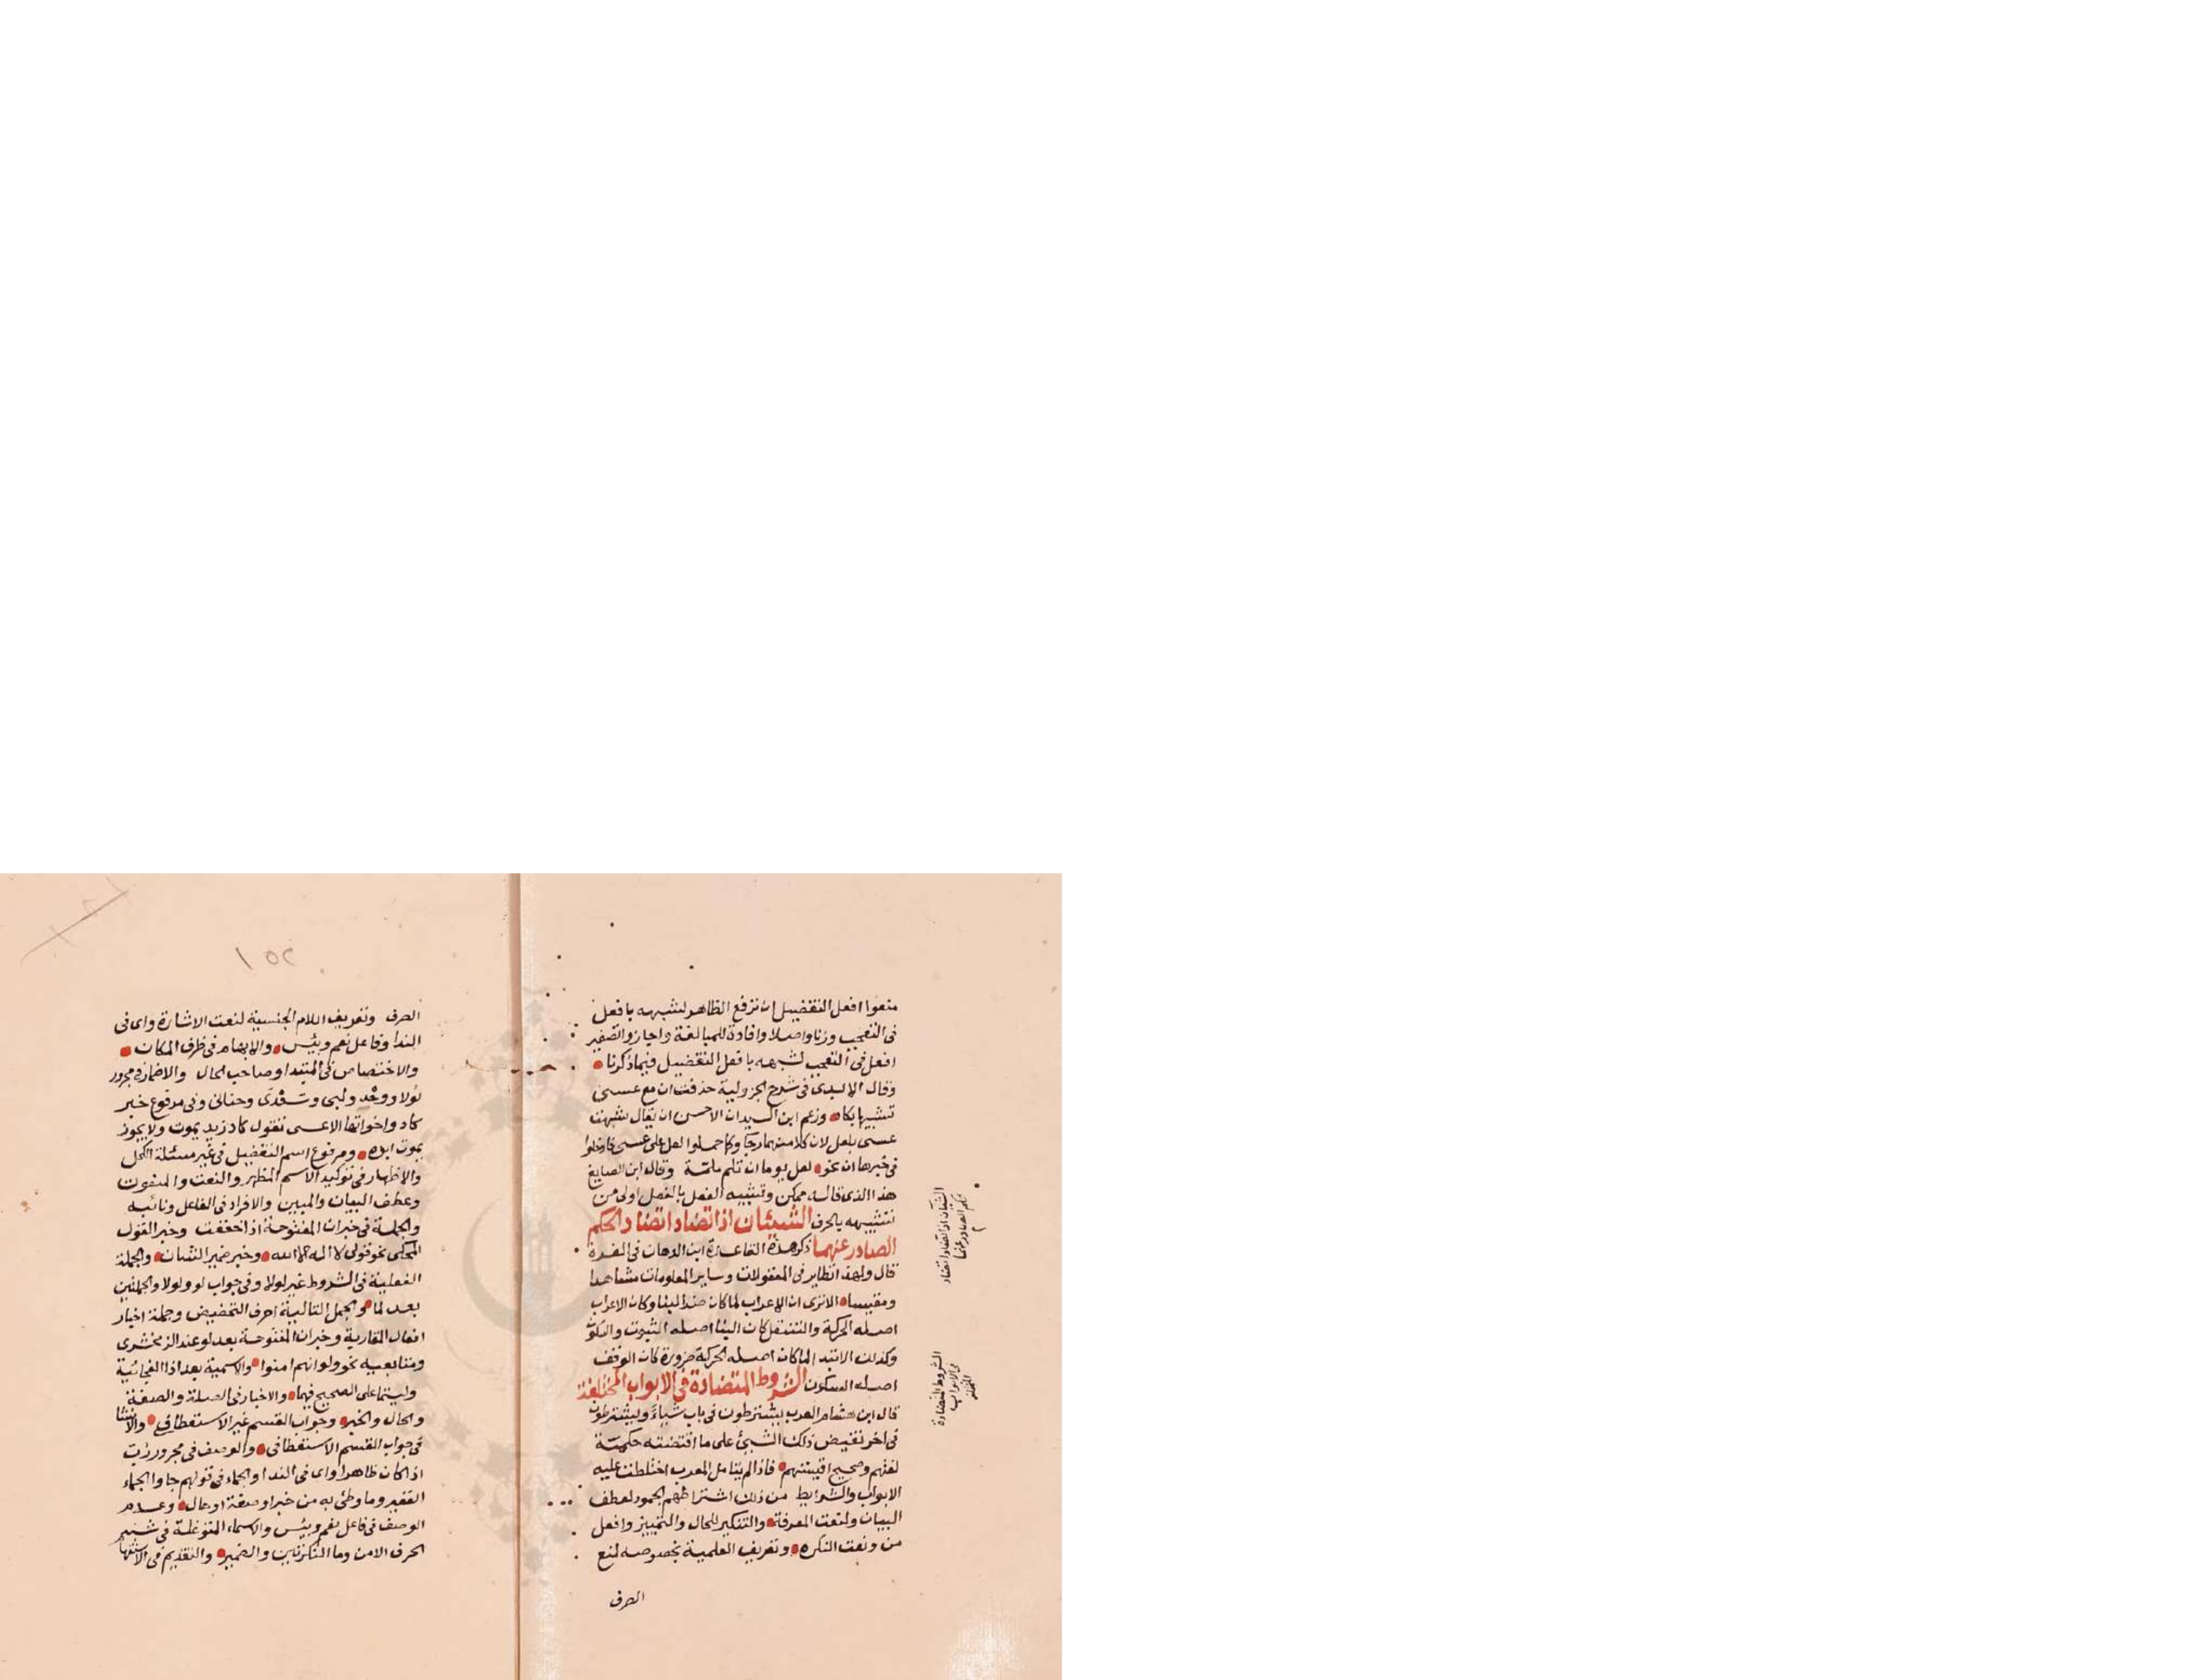 منعوا افعل التفضيل ان ترفع الظاهر لشبهه بافعل
فى التعجب وزنا واصلا وافادة للمبالغة واجازوا تصغير
افعل فى التعجب لشبهه بافعل التفضيل فيما ذكرنا
وقال الابدى فى شرح الجزولية حذفت ان مع عسى
تشبيها بكاد وزعم ابن السيد ان الاحسن ان يقال شبهت
عسى بلعل لان كلا منهما رجآ وكما حملوا لعل على عسى فادخلوا
فى خبرها ان نحو لعل يوما ان تلم ملمة وقال ابن الصايغ
هذا الذى قاله ممكن وتشبيه الفعل بالفعل اولى من
تشبيهه بالحرف الشيئان اذا تضادا تضاد الحكم
الصادر عنهما ذكر هذه القاعدة ابن الدهان فى الغرة
قال ولهذا نظاير فى المعقولات وساير المعلومات مشاهدا
ومقيسا الا ترى ان الاعراب لما كان ضد البنا وكان الاعراب
اصله الحركة والتنقل كان البنا اصله الثبوت والسكون
وكذلك الابتدا لما كان اصله الحركة ضرورة كان الوقف
اصله السكون الشروط المتضادة فى الابواب المختلفة
قال ابن هشام العرب يشترطون فى باب شياء ويشترطون
فى اخر نقيض ذلك الشيئ على ما اقتضته حكمة
لغتهم وصحيح اقيستهم فاذا لم يتامل المعرب اختلطت عليه
الابواب والشرايط من ذلك اشتراطهم الجمود لعطف
البيان ولنعت المعرفة والتنكير للحال والتمييز وافعل
من ونعت النكره وتعريف العلمية بخصوصه لمنع
الصرف
الشيئان اذا تضادا تضاد
الحكم الصادر عنهما
الشروط المتضادة
فى الابواب
المختلفة
١٥٢
الصرف وتعريف اللام الجنسية لنعت الاشارة واى فى
الندا وفاعل نعم وبئس والابهام فى ظرف المكان
والاختصاص فى المبتدا وصاحب الحال والاضمار فى مجرور
لولا ووحد ولبى وسعدى وحنانى وفى مرفوع خبر
كاد واخواتها الا عسى تقول كاد زيد يموت ولا يجوز
يموت ابوه ومرفوع اسم التفضيل فى غير مسئلة الكحل
والاظهار فى توكيد الاسم المظهر والنعت والمنعوت
وعطف البيان والمبين والافراد فى الفاعل ونائبه
والجملة فى خبر ان المفتوحة اذا خففت وخبر القول
المحكى نحو قولى لا اله الا الله وخبر ضمير الشان والجملة
الفعلية فى الشروط غير لولا وفى جواب لو ولولا والجملتين
بعد لما والجمل التالية احرف التحضيض وجملة اخبار
افعال المقاربة وخبر ان المفتوحة بعد لو عند الزمخشرى
ومتابعيه نحو ولو انهم امنوا والاسمية بعد اذا الفجائية
وليتما على الصحيح فيهما والاخبار فى الصلة والصفة
والحال والخبر وجواب القسم غير الاستعطافى والانشا
فى جواب القسم الاستعطافى والوصف فى مجرور رب
اذا كان ظاهرا واى فى الندا والجماء فى قولهم جاوا الجماء
الغفير وما وطئ به من خبر او صفة او حال وعدم
الوصف فى فاعل نعم وبئس والاسماء المتوغلة فى شبه
الحرف الا من وما النكرتين والضمير والتقديم فى الاستفهام